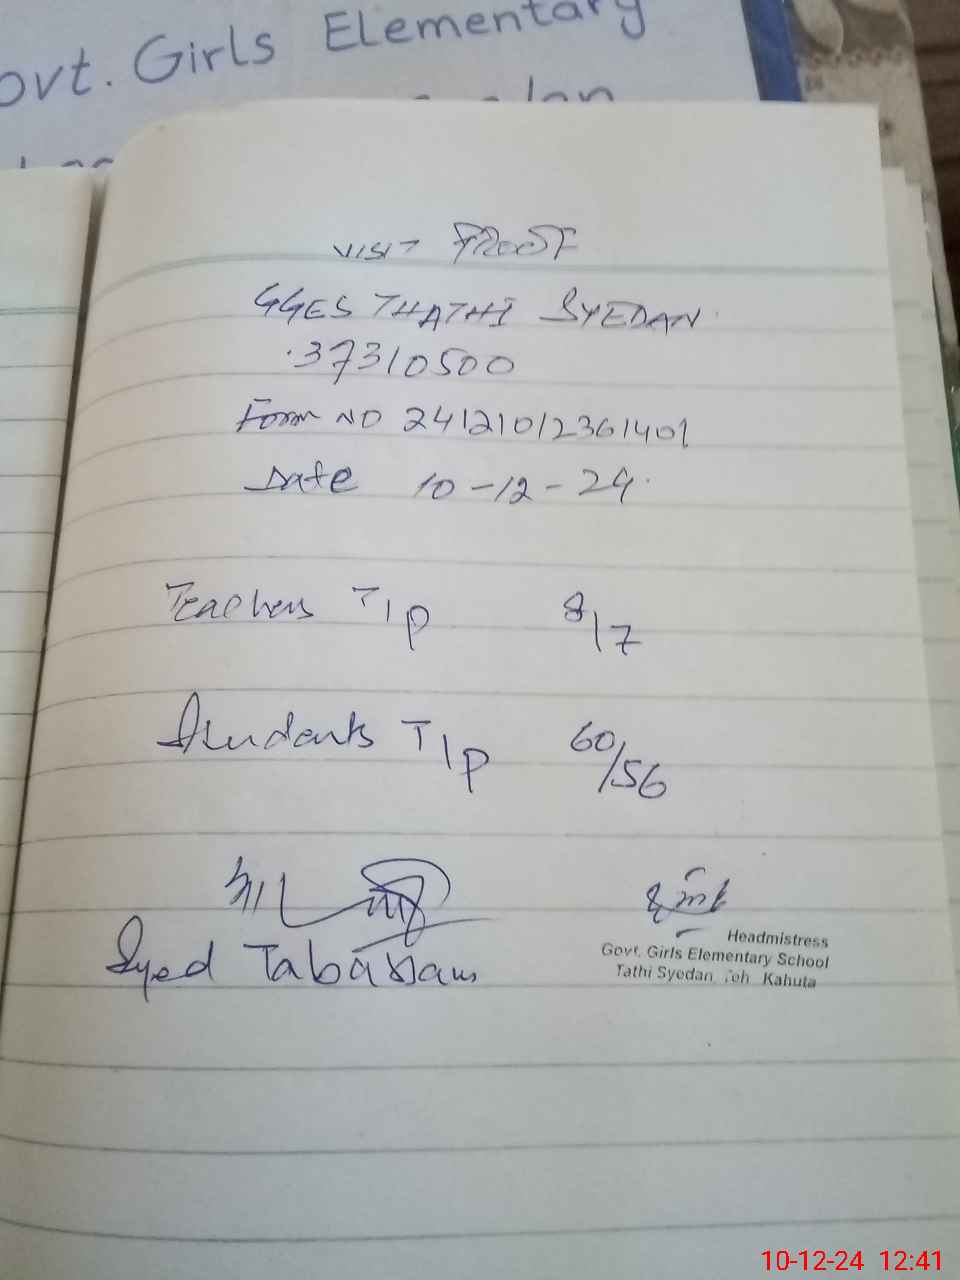 ovt. Girls Elementary
VISIT PROOF
GGES THATHI SYEDAN
37310500
Form NO 24121012361401
Date 10-12-24
Teachers T/P 8/7
Students T/P 60/56
Syed Tabassam
Headmistress
Govt. Girls Elementary School
Tathi Syedan, Teh Kahuta
10-12-24 12:41